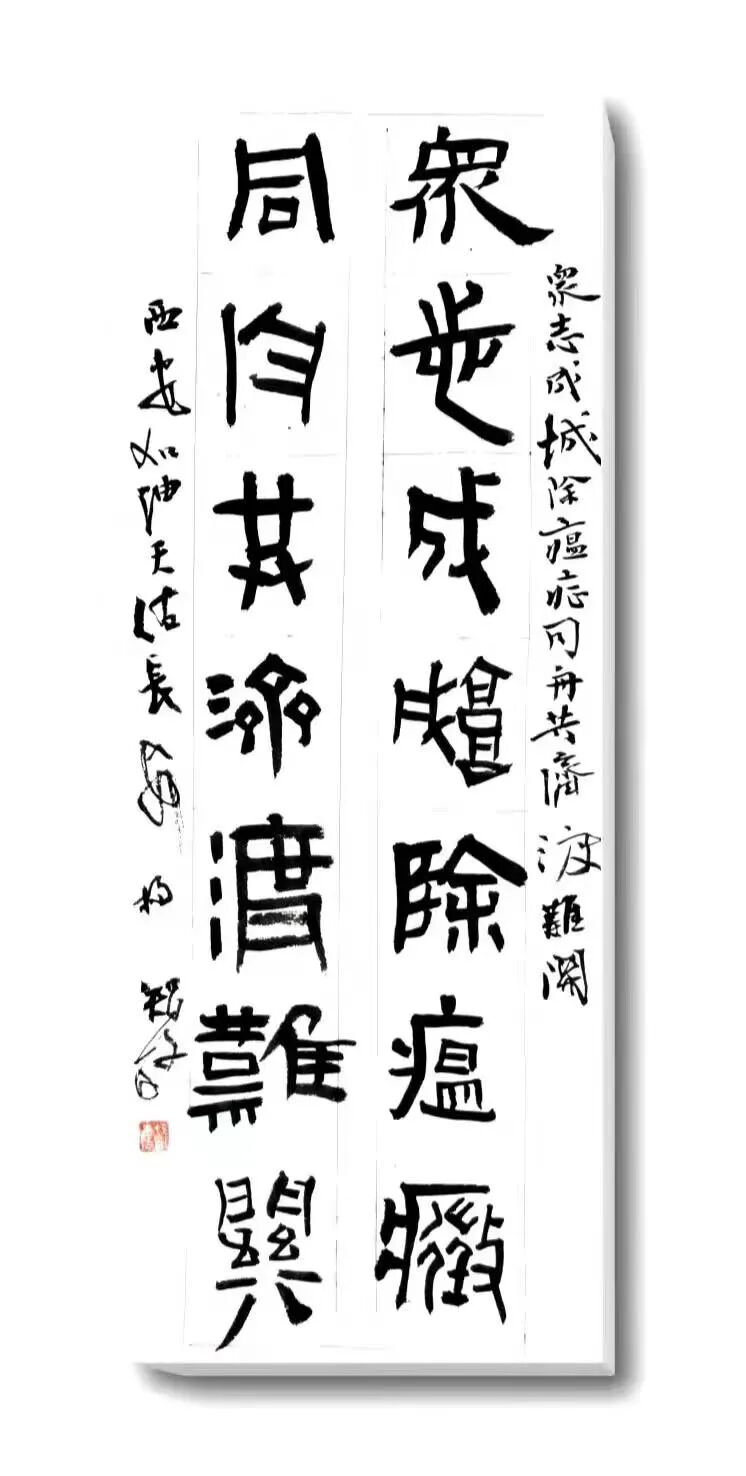 眾志成城除瘟症同舟共濟渡難関
眾志成城除瘟癥
同舟共濟渡難關
西安如天佑長